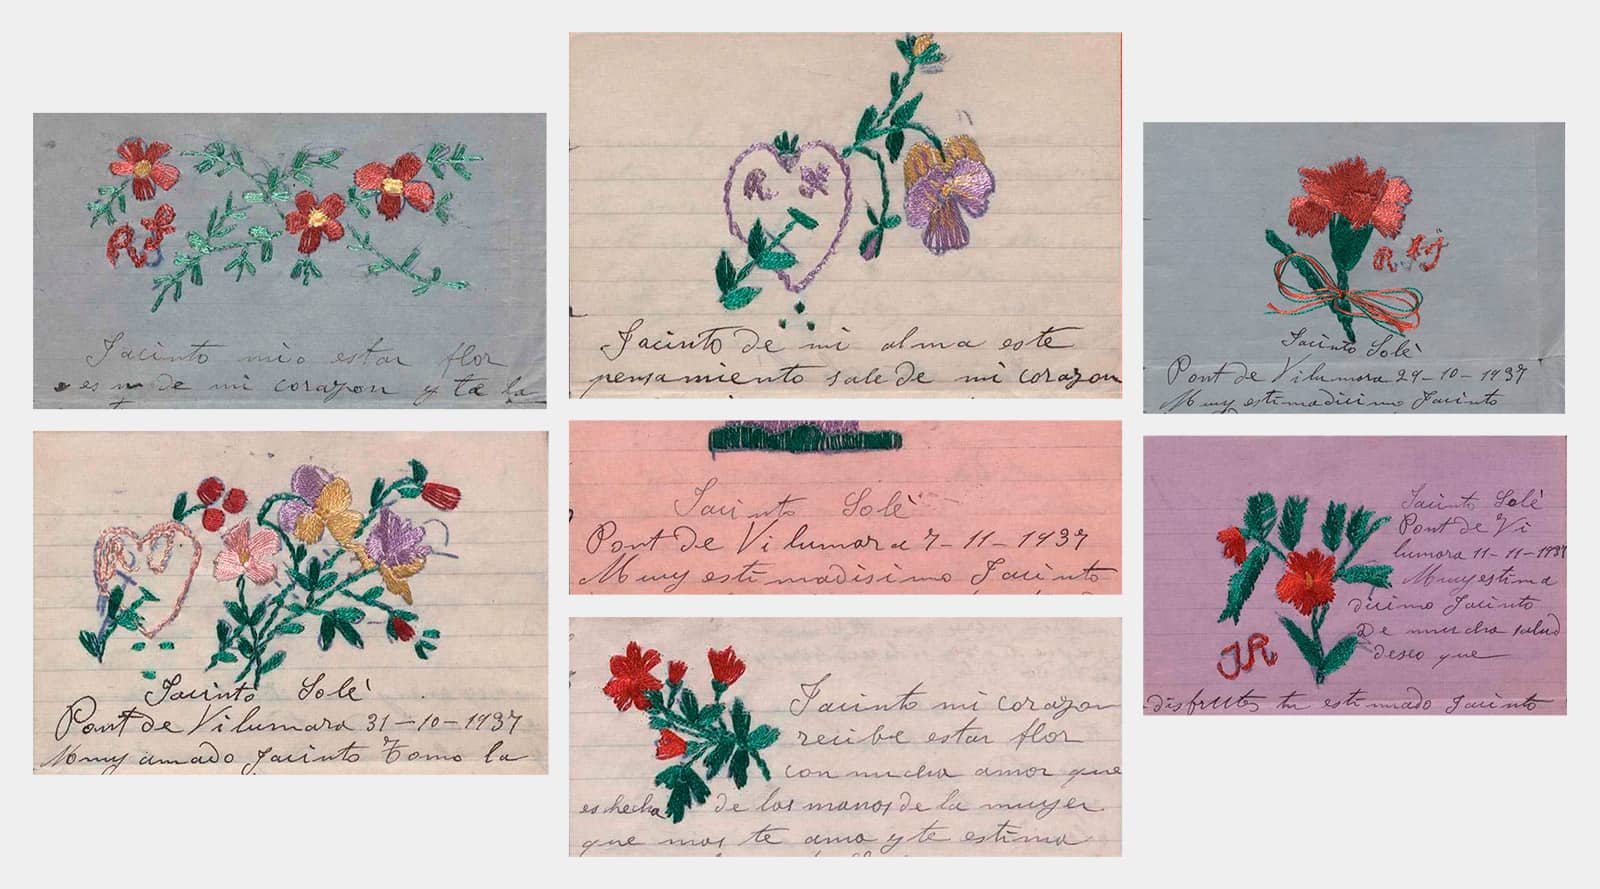 R J
Jacinto mio estar flor
es de mi corazon y te la
Jacinto Solè
Pont de Vilumara 31-10-1937
Muy amado Jacinto Tomo la
R J
Jacinto de mi alma este
pensamiento sale de mi corazon
Jacinto Solè
Pont de Vilumara 7-11-1937
Muy estimadisimo Jacinto
Jacinto mi corazon
recibe estar flor
con mucha amor que
es hecha de las manos de la muyer
que mas te ama y te estima
R J
Jacinto Solè
Pont de Vilumara 29-10-1937
Muy estimadicimo Jacinto
Jacinto Solè
Pont de Vi
lumara 11-11-1937
Muy estima
dicimo Jacinto
De mucha salud
deseo que
JR
disfrutes tu estimado Jacinto